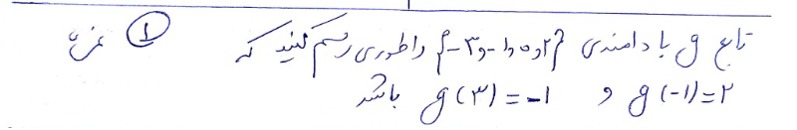 تابع g با دامنه‌ی {-۳,-۱,۰,۲} را طوری رسم کنید که ① نمره
g(-۱)=۲ و g(۳)=-۱ باشد